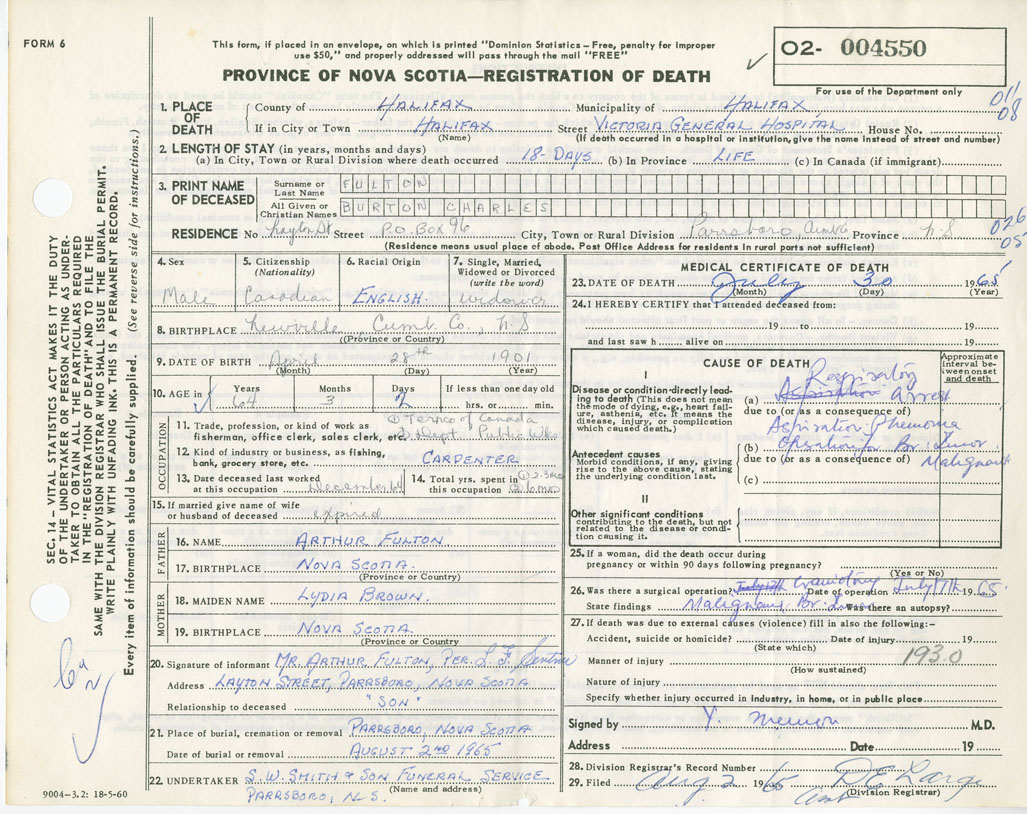 FORM 6
This form, if placed in an envelope, on which is printed "Dominion Statistics – Free, penalty for improper
use $50," and properly addressed will pass through the mail "FREE"
PROVINCE OF NOVA SCOTIA—REGISTRATION OF DEATH
02- 004550
For use of the Department only
011
08
1. PLACE OF DEATH
County of HALIFAX Municipality of HALIFAX
If in City or Town HALIFAX Street VICTORIA GENERAL HOSPITAL House No.
(Name) (If death occurred in a hospital or institution, give the name instead of street and number)
2. LENGTH OF STAY (in years, months and days)
(a) In City, Town or Rural Division where death occurred 18-DAYS (b) In Province LIFE (c) In Canada (if immigrant)
3. PRINT NAME OF DECEASED
Surname or Last Name FULTON
All Given or Christian Names BURTON CHARLES
RESIDENCE No Layton St Street P.O. Box 96 City, Town or Rural Division Parrsboro Province N.S
(Residence means usual place of abode. Post Office Address for residents in rural parts not sufficient)
026
05
4. Sex
Male
5. Citizenship
(Nationality)
Canadian
6. Racial Origin
ENGLISH.
7. Single, Married, Widowed or Divorced
(write the word)
widower
8. BIRTHPLACE Cumb. Co., N.S
(Province or Country)
9. DATE OF BIRTH April 28th 1901
(Month) (Day) (Year)
10. AGE in Years Months Days If less than one day old
64 3 2 hrs. or min.
OCCUPATION
11. Trade, profession, or kind of work as
fisherman, office clerk, sales clerk, etc. Dept Public Wks
12. Kind of industry or business, as fishing,
bank, grocery store, etc. CARPENTER
13. Date deceased last worked
at this occupation December 64
14. Total yrs. spent in
this occupation
15. If married give name of wife
or husband of deceased expired
FATHER
16. NAME ARTHUR FULTON
17. BIRTHPLACE NOVA SCOTIA.
(Province or Country)
MOTHER
18. MAIDEN NAME LYDIA BROWN.
19. BIRTHPLACE NOVA SCOTIA.
(Province or Country)
20. Signature of informant MR. ARTHUR FULTON, PER. L F.
Address LAYTON STREET, PARRSBORO, NOVA SCOTIA
Relationship to deceased "SON"
21. Place of burial, cremation or removal PARRSBORO, NOVA SCOTIA
Date of burial or removal AUGUST 2ND 1965
22. UNDERTAKER S.W. SMITH & SON FUNERAL SERVICE
(Name and address)
PARRSBORO, N.S.
9004-3.2: 18-5-60
MEDICAL CERTIFICATE OF DEATH
23. DATE OF DEATH July 30 1965
(Month) (Day) (Year)
24. I HEREBY CERTIFY that I attended deceased from:
19 to 19
and last saw h alive on 19
CAUSE OF DEATH
Approximate interval between onset and death
I
Disease or condition directly leading to death (This does not mean the mode of dying, e.g., heart failure, asthenia, etc. It means the disease, injury, or complication which caused death.)
(a) Respiratory arrest
due to (or as a consequence of)
Aspiration Pneumonia
Antecedent causes
Morbid conditions, if any, giving rise to the above cause, stating the underlying condition last.
(b) Operation for Br. Tumor
due to (or as a consequence of) Malignant
(c)
II
Other significant conditions
contributing to the death, but not related to the disease or condition causing it.
25. If a woman, did the death occur during
pregnancy or within 90 days following pregnancy?
(Yes or No)
26. Was there a surgical operation? Craniotomy Date of operation July 17th 1965
State findings Malignant Br. Tumor Was there an autopsy?
27. If death was due to external causes (violence) fill in also the following:–
Accident, suicide or homicide? Date of injury 19
(State which)
Manner of injury 193.0
(How sustained)
Nature of injury
Specify whether injury occurred in industry, in home, or in public place
Signed by Y. M.D.
Address Date 19
28. Division Registrar's Record Number
29. Filed Aug 2 1965
(Division Registrar)
SEC. 14 – VITAL STATISTICS ACT MAKES IT THE DUTY
OF THE UNDERTAKER OR PERSON ACTING AS UNDER-
TAKER TO OBTAIN ALL THE PARTICULARS REQUIRED
IN THE "REGISTRATION OF DEATH" AND TO FILE THE
SAME WITH THE DIVISION REGISTRAR WHO SHALL ISSUE THE BURIAL PERMIT.
WRITE PLAINLY WITH UNFADING INK—THIS IS A PERMANENT RECORD.
Every item of information should be carefully supplied. (See reverse side for instructions.)